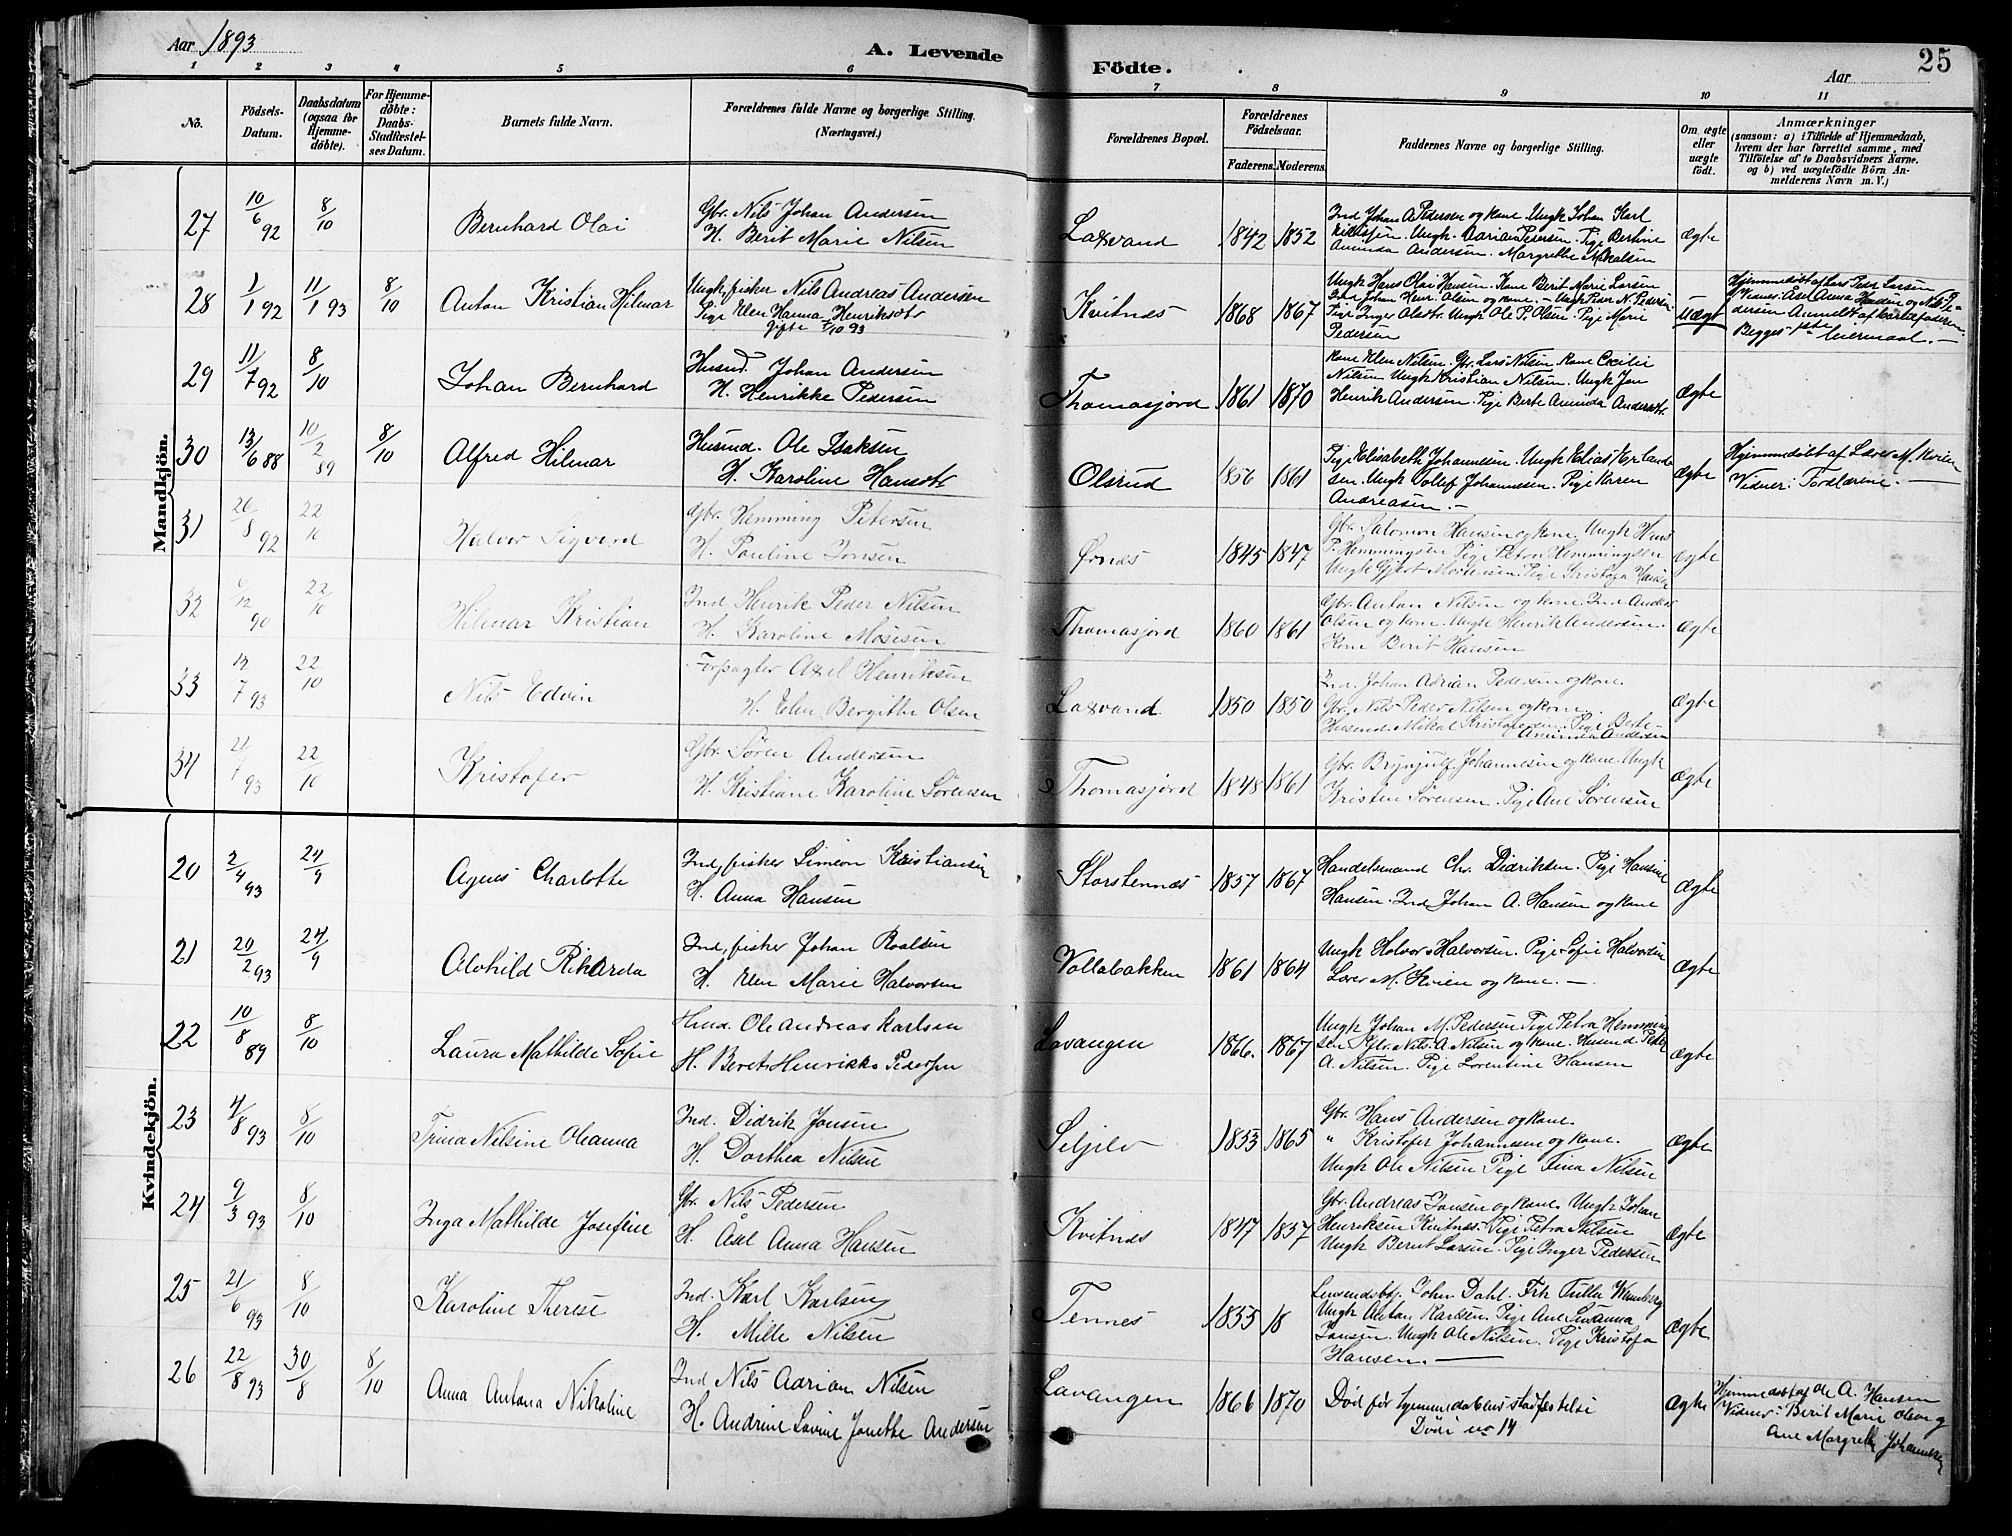 Aar 1893
A. Levende
Födte.
Aar
25
1 2 3 4 5 6 7 8 9 10 11
No.
Födsels-Datum.
Daabsdatum (ogsaa for Hjemme-döbte).
For Hjemme-döbte: Daabs-Stadfæstel-ses Datum.
Barnets fulde Navn.
Forældrenes fulde Navne og borgerlige Stilling.
(Næringsvei.)
Forældrenes Bopæl.
Forældrenes Födselsaar.
Faderens. Moderens.
Faddernes Navne og borgerlige Stilling.
Om ægte eller uægte födt.
Anmærkninger
(saasom: a) i Tilfælde af Hjemmedaab,
hvem der har forrettet samme, med
Tilföielse af to Daabsvidners Navne.
og b) ved uægtefödte Börn An-
melderens Navn m. V.)
Mandkjön.
27 10/6 92 8/10 Bernhard Olai
Gbr. Nils Johan Andersen
H. Berit Marie Nilsen
Laxvand 1842 1852
Ind Johan A Pedersen og kone. Ungk Johan Karl
Ungk. Adrian Pedersen. Pige Bertine
Aminda Andersen. Margrethe Mikalsen
Ægte
28 1/1 92 11/1 93 8/10 Anton Kristian Hilmar
Ungk, fisker Nils Andreas Andersen
Pige Elen Hanna Henriksdtr
gifte 7/10 93
Kvitnes 1868 1867
Ungk Hans Olai Hansen. Kone Berit Marie Larsen
Ind Johan Henr. Olsen og kone. – Ungk Peder N. Pedersen
Pige Inger Olsdtr. Ungk Ole P. Olsen. Pige Marie
Pedersen
uægte
Hjemmedöbt af Lars Peder Larsen
Vidner: Åsel Anna Hansen og Nils Pe-
dersen Anmeldt af barnefaderen.
Begges 1ste leiermaal. –
29 11/7 92 8/10 Johan Bernhard
Husmd Johan Andersen
H. Henrikke Pedersen
Thomasjord 1861 1870
Kone Elen Nilsen. Gbr. Lars Nilsen Kone Cecilie
Nilsen Ungk Kristian Nilsen. Ungk Jon
Henrik Andersen. Pige Berte Aminda Andersdtr
Ægte
30 13/6 88 10/2 89 8/10 Alfred Hilmar
Husmd. Ole Isaksen
H. Karoline Hansdtr
Olsrud 1856 1861
Pige Elisabeth Johannesen. Ungk Elias Erland-
sen. Ungk Tollef Johannessen. Pige Karen
Andreasen. –
Ægte
Hjemmedöbt af Lærer M. Kvien
Vidner: Forældrene. –
31 26/8 92 22/10 Halvor Sigverd
Gbr. Hemming Petersen
H. Pauline Jonsen
Ørnes 1845 1847
Gbr. Salomon Hansen og kone. Ungk Hans
P. Hemmingsen Pige Petra Hemmingsen
Ungk Gjert Mortensen. Pige Kristofa Hansen
Ægte
32 90 22/10 Hilmar Kristian
Ind Henrik Peder Nilsen
H. Karoline Mosesen
Thomasjord 1860 1861
Gbr. Anton Nilsen og kone. Ind Anders
Olsen og kone. Ungk Henrik Andersen.
Kone Berit Hansen
Ægte
33 7 93 22/10 Nils Edvin
Forpagter Axel Henriksen
H. Elen Bergitte Olsen
Laxvand 1850 1850
Ind. Johan Adrian Pedersen og kone.
Gbr. Nils Peder Nilsen og kone.
Husmd. Mikal Kristofersen. Pige Berte
Aminda Andersen
Ægte
34 21/7 93 22/10 Kristofer
Gbr. Sören Andersen
H. Kristiane Karoline Sörensen
Thomasjord 1848 1861
Gbr. Brynjulf Johannesen og kone. Ungk
Kristen Sörensen. Pige Ane Sörensen
Ægte
Kvindekjön.
20 2/4 93 24/9 Agnes Charlotte
Ind, fisker Simeon Kristiansen
H. Anna Hansen
Storstennes 1857 1867
Handelsmand Chr. Didriksen. Pige Hansine
Hansen. Ind Johan A. Hansen og kone
Ægte
21 20/2 93 24/9 Alvhild Rikarda
Ind, fisker Johan Roalsen
H. Elen Marie Halvorsen
Vollabakken 1861 1864
Ungk Halvor Halvorsen. Pige Sofie Halvorsen
Lærer M. Kvien og kone. –
Ægte
22 10/8 89 8/10 Laura Mathilde Sofie
Husmd. Ole Andreas Karlsen
H. Beret Henrikke Pedersen
Lavangen 1866. 1867
Ungk Johan M. Pedersen Pige Petra Hemming
sen Gbr. Nils A Nilsen og kone. Husmd Peder
A. Nilsen. Pige Lorentine Hansen
Ægte
23 4/8 93 8/10 Trina Nilsine Oleanna
Ind. Didrik Jonsen
H. Dorthea Nilsen
Seljelv 1853 1865
Gbr. Hans Andersen og kone.
" Kristofer Johannesen og kone.
Ungk Ole Nilsen Pige Tina Nilsen
Ægte
24 9/3 93 8/10 Inga Mathilde Josefine
Gbr. Nils Pedersen
H. Åsel Anna Hansen
Kvitnes 1847 1857
Gbr. Andreas Jonsen og kone. Ungk Johan
Henriksen Kvitnes. Pige Petra Nilsen
Ungk Bernt Larsen. Pige Inger Pedersen
Ægte
25 21/6 93 8/10 Karoline Therese
Ind. Karl Karlsen
H. Mille Nilsen
Tennes 1855 18
Lensmdsbtj. John Dahl. Frk Tulla Wennberg
Ungk Anton Karlsen. Pige Ane Susanna
Jonsen. Ungk Ole Nilsen. Pige Kristofa
Hansen. –
Ægte
26 22/8 93 30/8 8/10 Anna Antona Nikoline
Ind Nils Adrian Nilsen
H. Andrine Lovine Jonette Andersen
Lavangen 1866 1870
Död för hjemmedaabens stadfæstelse
Döde no 14
Ægte
Hjemmedöbt af Ole A. Hansen
Vidner: Berit Marie Olsen og
Ane Margrethe Johannesen